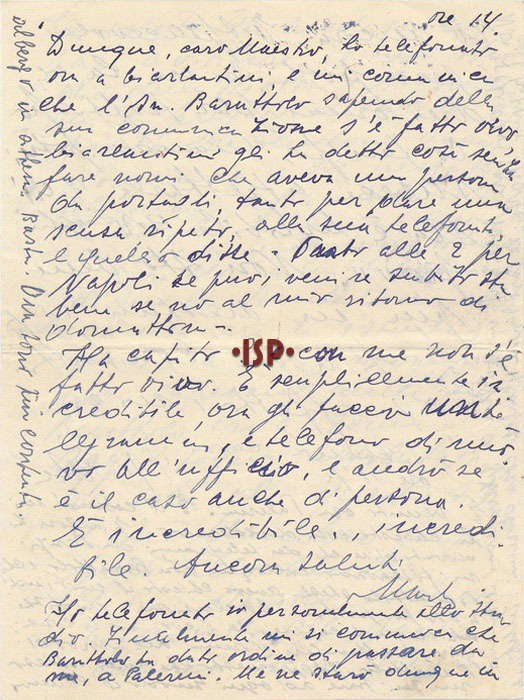 ore 14
Dunque, caro Maestro, ho telefonato
ora a e mi comunica
che l'On. Barattolo sapendo della
sua comunicazione s'è fatto vivo
gli ha detto così senza
fare nomi che aveva una persona
da portargli, tanto per dare una
scusa ripeto, alla sua telefonata,
e quello disse - Parto alle 2 per
Napoli se puoi, venire subito sta
bene se no al mio ritorno di
domattina -.
Ha capito? e con me non s'è
fatto vivo. È semplicemente in
credibile ora gli faccio un te
legramma, e telefono di nuo
vo all'ufficio, e andrò se
è il caso anche di persona.
È incredibile, incredi
bile. Ancora saluti
Ho telefonato io personalmente allo stu
dio. Finalmente mi si comunica che
Barattolo ha dato ordine di passare da
me, a Palermi. Me ne starò dunque in
albergo in attesa. Basta. Ora sono
ISP